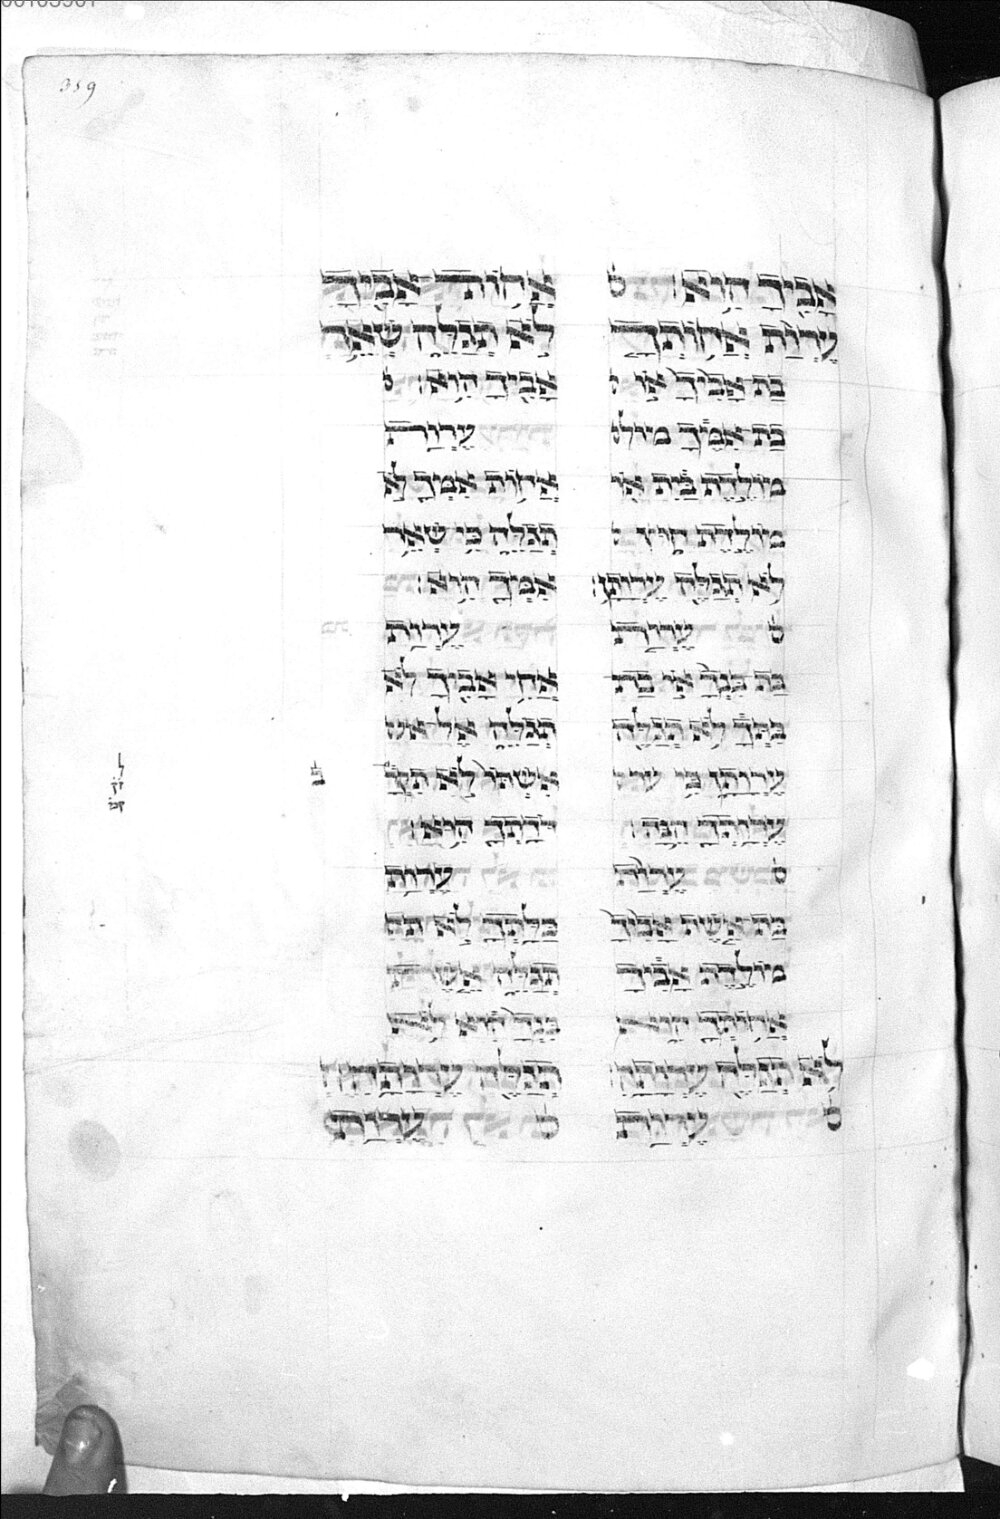 359
אָבִיךָ הִוא׃ ס
עֶרְוַת אֲחוֹתְךָ
בַת אָבִיךָ אוֹ
בַת אִמֶּךָ מול
מוֹלֶדֶת בַּיִת אוֹ
מוֹלֶדֶת חוּץ
לֹא תְגַלֶּה עֶרְוָתָן׃
ס עֶרְוַת
בַּת בִּנְךָ אוֹ בַת
בִּתְּךָ לֹא תְגַלֶּה
עֶרְוָתָן כִּי ערו
עֶרְוָתְךָ הֵנָּה׃
ס עֶרְוַת
בַּת אֵשֶׁת אָבִיךָ
מוֹלֶדֶת אָבִיךָ
אֲחוֹתְךָ הִוא
לֹא תְגַלֶּה עֶרְוָתָהּ
ס עֶרְוַת
אֲחוֹת אָבִיךָ
לֹא תְגַלֵּה שְׁאֵר
אָבִיךָ הִוא׃ ס
עֶרְוַת
אֲחוֹת אִמְּךָ לֹא
תְגַלֵּה כִּי שְׁאֵר
אִמְּךָ הִוא׃
עֶרְוַת
אֲחִי אָבִיךָ לֹא
תְגַלֵּה אֶל אש
אִשְׁתּוֹ לֹא תִקְרָב
דֹּדָתְךָ הִוא׃
עֶרְוַת
כַּלָּתְךָ לֹא תג
תְגַלֵּה אֵשֶׁת
בִּנְךָ הִוא לֹא
תְגַלֶּה עֶרְוָתָהּ׃
ס עֶרְוַת